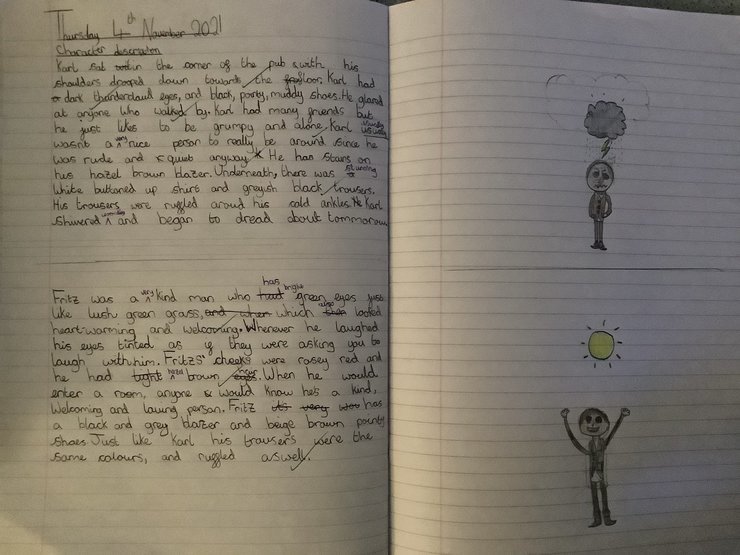 Thursday 4th November 2021
Character description
Karl sat within the corner of the pub with his
shoulders drooped down towards the floor. Karl had
dark thundercloud eyes, and black, pointy, muddy shoes. He glared
at anyone who walked by. Karl had many friends but
he just likes to be grumpy and alone. Karl usually
wasn't a very nice person to really be around since he
was rude and quiet anyway. He has stains on
his hazel brown blazer. Underneath, there was a stunning
white buttoned up shirt and greyish black trousers.
His trousers were ruggled aroud his cold ankles. He Karl
shivered and began to dread about tommorow.
Fritz was a very kind man who had has bright green eyes just
like lush green grass, and when which then also looked
heart-warming and welcoming. Whenever he laughed
his eyes tinted as if they were asking you to
laugh with him. Fritzs' cheeks were rosey red and
he had tight hazel brown eyes hair. When he would
enter a room, anyone would know he's a kind,
welcoming and loving person. Fritz its very was has
a black and grey blazer and beige brown pointy
shoes. Just like Karl his trousers were the
same colours, and ruggled aswell.